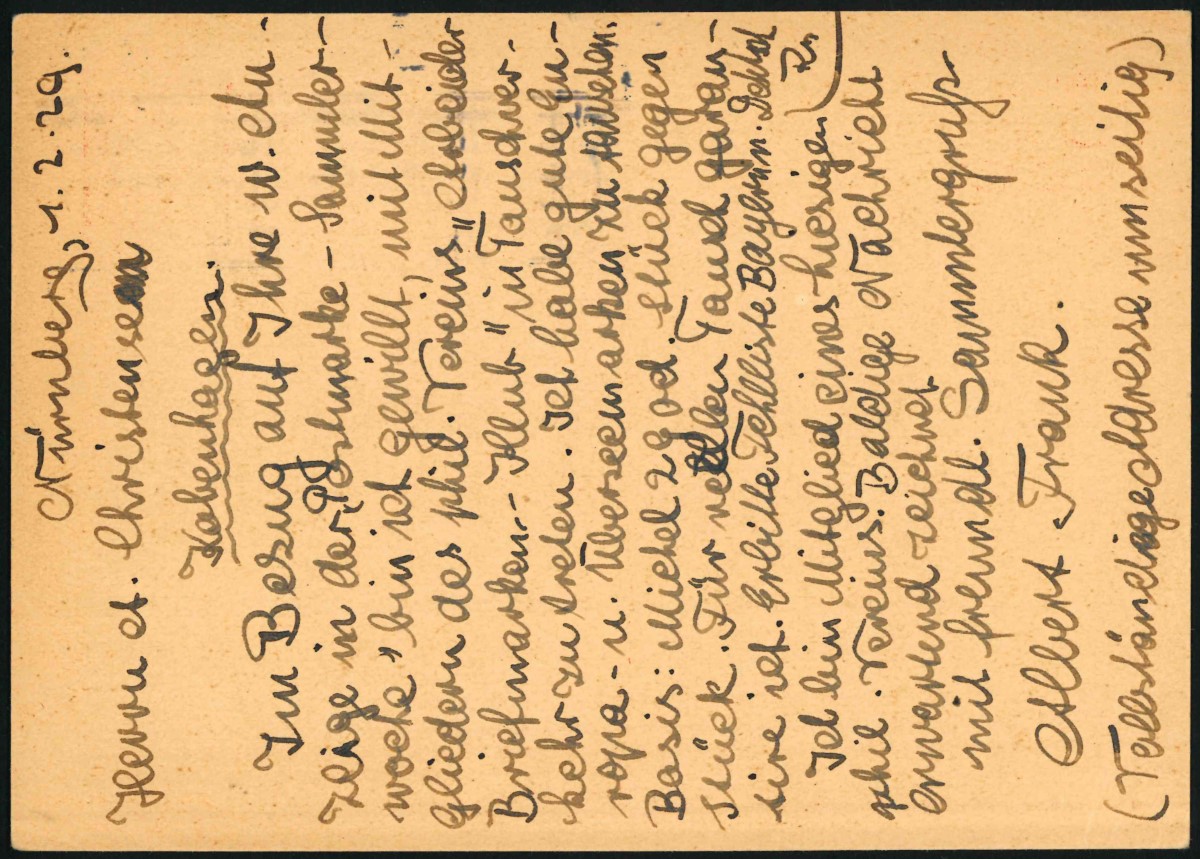 Nürnberg, 1. 2. 29.
Herrn A. Christensen
Kobenhagen.
Im Bezug auf Ihre w. An-
zeige in der „Postmarke-Sammler-
woche“, bin ich gewillt, mit Mit-
gliedern des phil. Vereins „Arbeider
Briefmarken-Klub“ in Tauschver-
kehr zu treten. Ich habe gute Eu-
ropa- u. Überseemarken zu
Basis: Michel 29 od. Stück gegen
Stück. Für reellen Tausch garan-
tire ich. Erbitte Fehlliste Bayern.
Ich bin Mitglied eines hiesigen
phil. Vereins. Baldige Nachricht
erwartend zeichnet
mit freundl. Sammlergruß
Albert Frank.
(Vollständige Addresse umseitig)